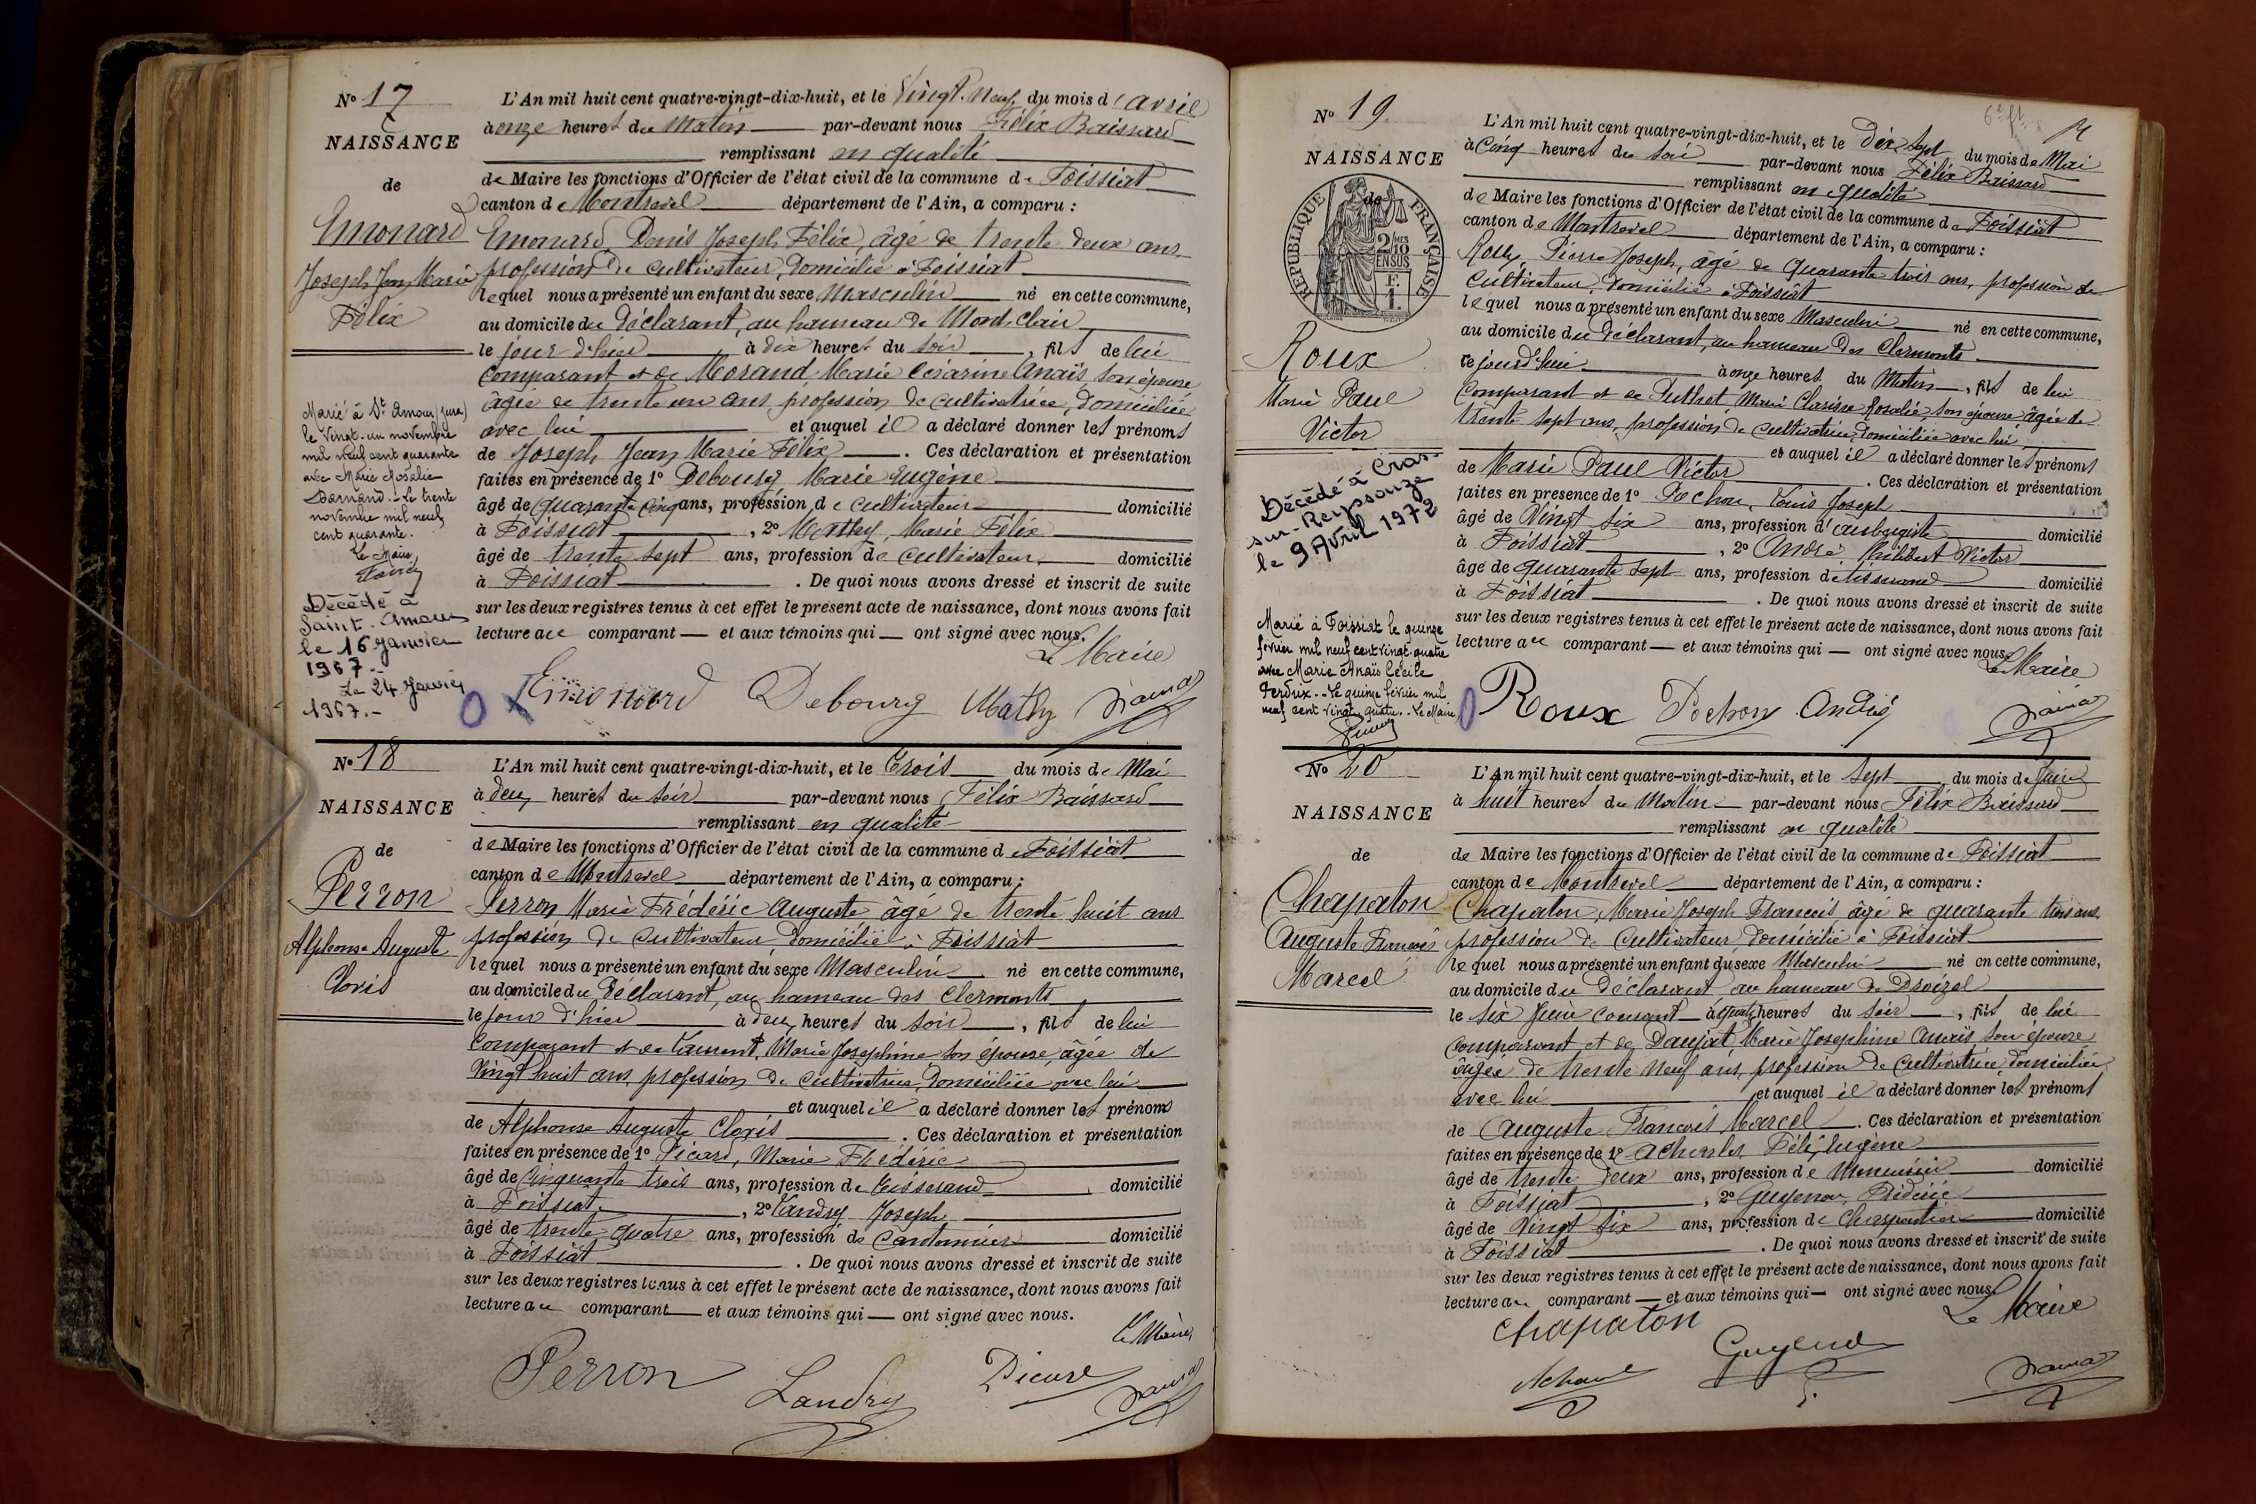 N° 17
NAISSANCE
de
Emonard
Joseph Jean Marie
Félix
Marié à St Amour (Jura)
le Vingt-un novembre
mil neuf cent quarante
avec Marie Rosalie
Le trente
novembre mil neuf
cent quarante.
Le Maire
Décédé à
Saint-Amour
le 16 Janvier
1967.-
Le 24 Janvier
1967.-
L'An mil huit cent quatre-vingt-dix-huit, et le Vingt-Neuf du mois d'avril
à onze heures du Matin par-devant nous Félix
remplissant en qualité
de Maire les fonctions d'Officier de l'état civil de la commune de Foissiat
canton de Montrevel département de l'Ain, a comparu :
Emonard, Denis Joseph Félix, âgé de trente deux ans,
profession de cultivateur, domicilié à Foissiat
lequel nous a présenté un enfant du sexe Masculin né en cette commune,
au domicile du déclarant, au hameau de Mont-Clair
le jour d'hier à dix heures du soir, fils de lui
comparant et de Morand Marie Césarine Anaïs, son épouse
âgée de trente un ans, profession de cultivatrice, domiciliée
avec lui et auquel il a déclaré donner les prénoms
de Joseph Jean Marie Félix. Ces déclaration et présentation
faites en présence de 1° Debourg Marie Eugène
âgé de quarante cinq ans, profession de cultivateur domicilié
à Foissiat, 2° Mathy, Marie Félix
âgé de trente sept ans, profession de cultivateur domicilié
à Foissiat. De quoi nous avons dressé et inscrit de suite
sur les deux registres tenus à cet effet le présent acte de naissance, dont nous avons fait
lecture au comparant et aux témoins qui ont signé avec nous.
Le Maire
Emonard Debourg Mathy
N° 18
NAISSANCE
de
Perron
Alphonse Auguste
Clovis
L'An mil huit cent quatre-vingt-dix-huit, et le Trois du mois de Mai
à deux heures du soir par-devant nous Félix
remplissant en qualité
de Maire les fonctions d'Officier de l'état civil de la commune de Foissiat
canton de Montrevel département de l'Ain, a comparu :
Perron Marie Frédéric Auguste âgé de trente huit ans
profession de cultivateur, domicilié à Foissiat
lequel nous a présenté un enfant du sexe Masculin né en cette commune,
au domicile du déclarant, au hameau des Clermonts
le jour d'hier à deux heures du soir, fils de lui
comparant et de Laurent, Marie Josephine son épouse, âgée de
Vingt huit ans, profession de cultivatrice, domiciliée avec lui
et auquel il a déclaré donner les prénoms
de Alphonse Auguste Clovis. Ces déclaration et présentation
faites en présence de 1° Picard, Marie Frédéric
âgé de Cinquante trois ans, profession de tisserand domicilié
à Foissiat, 2° Landry Joseph
âgé de trente quatre ans, profession de Cantonnier domicilié
à Foissiat. De quoi nous avons dressé et inscrit de suite
sur les deux registres tenus à cet effet le présent acte de naissance, dont nous avons fait
lecture au comparant et aux témoins qui ont signé avec nous.
Le Maire
Perron Landry Picard
N° 19
NAISSANCE
de
RÉPUBLIQUE FRANÇAISE
2/10 MES
EN SUS
F.
1.
Roux
Marie Paul
Victor
Décédé à Cras-
sur-Reyssouze
le 9 Avril 1972
Marié à Foissiat le quinze
février mil neuf cent vingt-quatre
avec Marie Anaïs Cécile
Perdrix.- Le quinze février mil
neuf cent vingt-quatre.- Le Maire
L'An mil huit cent quatre-vingt-dix-huit, et le Dix Sept du mois de Mai
à Cinq heures du soir par-devant nous Félix
remplissant en qualité
de Maire les fonctions d'Officier de l'état civil de la commune de Foissiat
canton de Montrevel département de l'Ain, a comparu :
Roux, Pierre Joseph, âgé de quarante trois ans, profession de
cultivateur, domicilié à Foissiat
lequel nous a présenté un enfant du sexe Masculin né en cette commune,
au domicile du déclarant, au hameau des Clermonts
ce jourd'hui à onze heures du Matin, fils de lui
comparant et de Puthet Marie Clarisse Rosalie son épouse âgée de
trente sept ans, profession de cultivatrice, domiciliée avec lui
et auquel il a déclaré donner les prénoms
de Marie Paul Victor. Ces déclaration et présentation
faites en présence de 1° Pochon, Louis Joseph
âgé de Vingt six ans, profession d'aubergiste domicilié
à Foissiat, 2° André Philibert Victor
âgé de quarante sept ans, profession de tisserand domicilié
à Foissiat. De quoi nous avons dressé et inscrit de suite
sur les deux registres tenus à cet effet le présent acte de naissance, dont nous avons fait
lecture au comparant et aux témoins qui ont signé avec nous.
Le Maire
Roux Pochon André
N° 20
NAISSANCE
de
Chapaton
Auguste François
Marcel
L'An mil huit cent quatre-vingt-dix-huit, et le Sept du mois de Juin
à huit heures du Matin par-devant nous Félix
remplissant en qualité
de Maire les fonctions d'Officier de l'état civil de la commune de Foissiat
canton de Montrevel département de l'Ain, a comparu :
Chapaton, Marie Joseph François, âgé de quarante trois ans,
profession de cultivateur, domicilié à Foissiat
lequel nous a présenté un enfant du sexe Masculin né en cette commune,
au domicile du déclarant au hameau de
le six Juin courant à quatre heures du soir, fils de lui
comparant et de Daujat Marie Josephine Anaïs son épouse
âgée de trente neuf ans, profession de cultivatrice, domiciliée
avec lui et auquel il a déclaré donner les prénoms
de Auguste François Marcel. Ces déclaration et présentation
faites en présence de 1° Eugène
âgé de trente deux ans, profession de Menuisier domicilié
à Foissiat, 2° Guyenon, Frédéric
âgé de Vingt six ans, profession de Charpentier domicilié
à Foissiat. De quoi nous avons dressé et inscrit de suite
sur les deux registres tenus à cet effet le présent acte de naissance, dont nous avons fait
lecture au comparant et aux témoins qui ont signé avec nous.
Le Maire
Chapaton